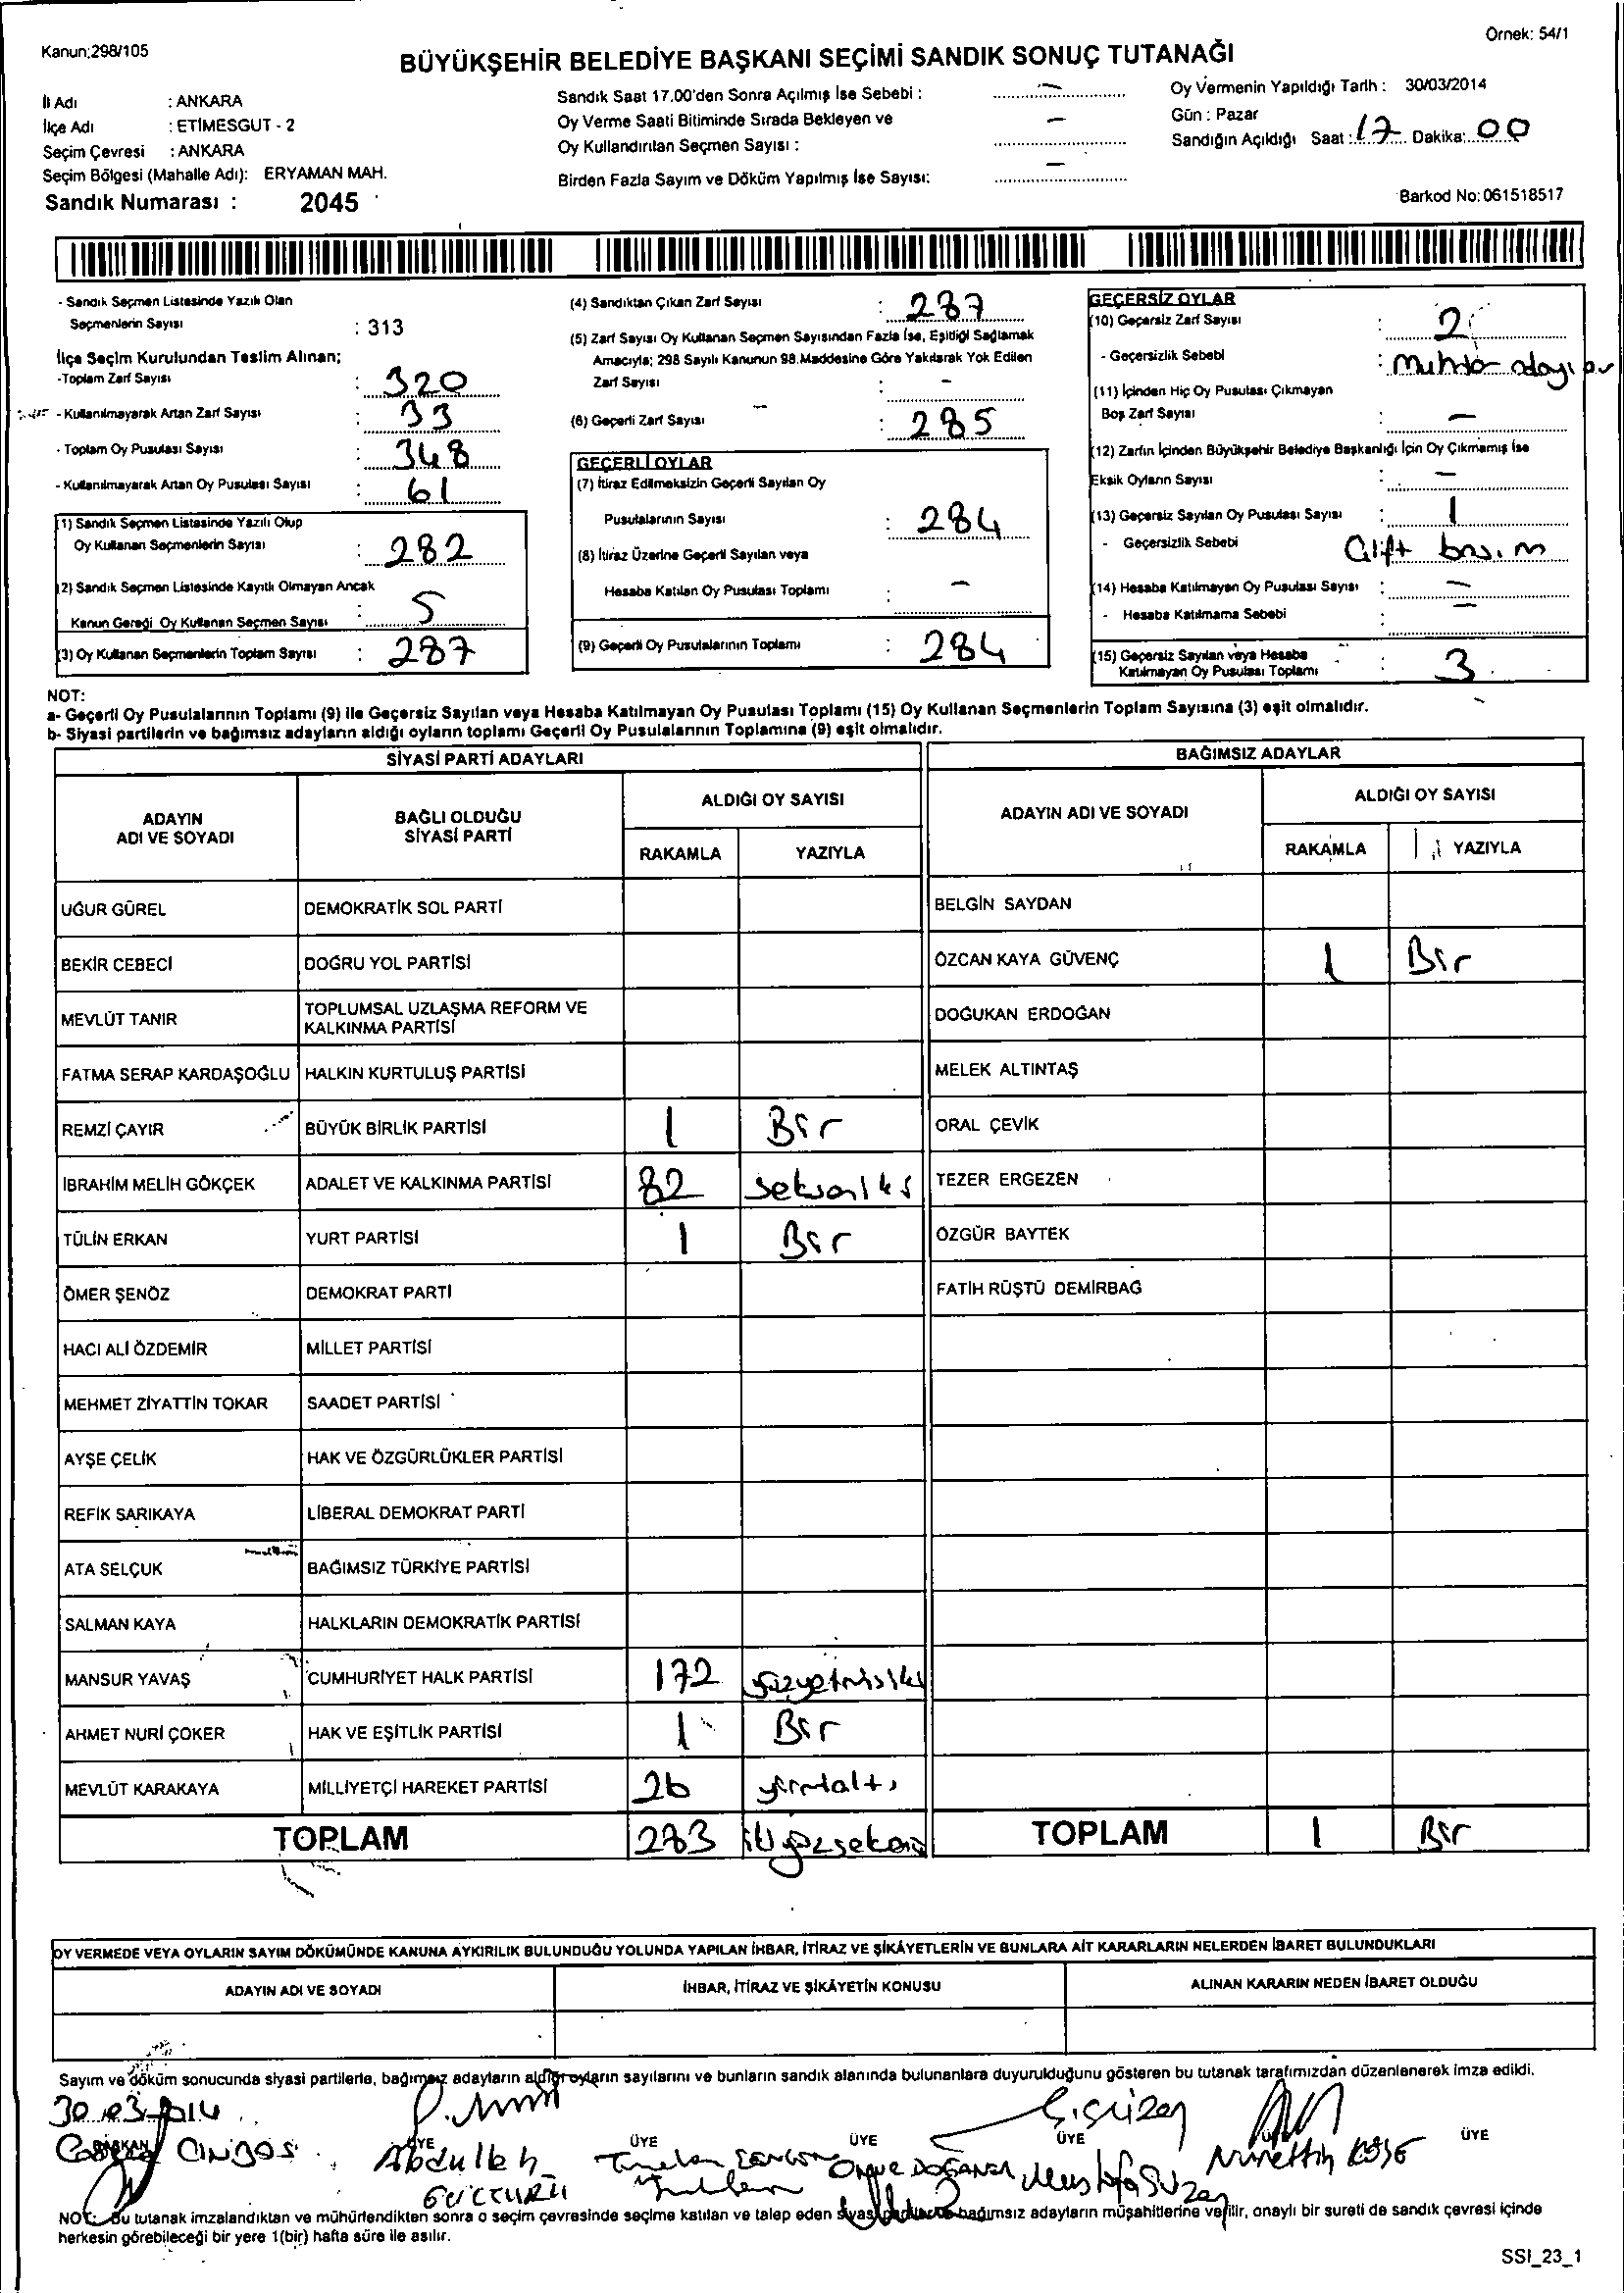 Kanun;298/105
Örnek: 54/1
BÜYÜKŞEHİR BELEDİYE BAŞKANI SEÇİMİ SANDIK SONUÇ TUTANAĞI
İl Adı : ANKARA
İlçe Adı : ETİMESGUT - 2
Seçim Çevresi : ANKARA
Seçim Bölgesi (Mahalle Adı): ERYAMAN MAH.
Sandık Numarası : 2045
Sandık Saat 17.00'den Sonra Açılmış İse Sebebi : —
Oy Verme Saati Bitiminde Sırada Bekleyen ve
Oy Kullandırılan Seçmen Sayısı : —
Birden Fazla Sayım ve Döküm Yapılmış İse Sayısı: —
Oy Vermenin Yapıldığı Tarih : 30/03/2014
Gün : Pazar
Sandığın Açıldığı Saat : 17 Dakika: 00
Barkod No: 061518517
- Sandık Seçmen Listesinde Yazılı Olan
Seçmenlerin Sayısı : 313
İlçe Seçim Kurulundan Teslim Alınan;
-Toplam Zarf Sayısı : 320
- Kullanılmayarak Artan Zarf Sayısı : 33
- Toplam Oy Pusulası Sayısı : 348
- Kullanılmayarak Artan Oy Pusulası Sayısı : 61
(1) Sandık Seçmen Listesinde Yazılı Olup
Oy Kullanan Seçmenlerin Sayısı : 282
(2) Sandık Seçmen Listesinde Kayıtlı Olmayan Ancak
Kanun Gereği Oy Kullanan Seçmen Sayısı : 5
(3) Oy Kullanan Seçmenlerin Toplam Sayısı : 287
(4) Sandıktan Çıkan Zarf Sayısı : 287
(5) Zarf Sayısı Oy Kullanan Seçmen Sayısından Fazla İse, Eşitliği Sağlamak
Amacıyla; 298 Sayılı Kanunun 98.Maddesine Göre Yakılarak Yok Edilen
Zarf Sayısı : -
(6) Geçerli Zarf Sayısı : 285
GEÇERLİ OYLAR
(7) İtiraz Edilmeksizin Geçerli Sayılan Oy
Pusulalarının Sayısı : 284
(8) İtiraz Üzerine Geçerli Sayılan veya
Hesaba Katılan Oy Pusulası Toplamı : -
(9) Geçerli Oy Pusulalarının Toplamı : 284
GEÇERSİZ OYLAR
(10) Geçersiz Zarf Sayısı : 2
- Geçersizlik Sebebi : Muhtar adayı
(11) İçinden Hiç Oy Pusulası Çıkmayan
Boş Zarf Sayısı : —
(12) Zarfın İçinden Büyükşehir Belediye Başkanlığı İçin Oy Çıkmamış İse
Eksik Oyların Sayısı : —
(13) Geçersiz Sayılan Oy Pusulası Sayısı : 1
- Geçersizlik Sebebi Çift basım
(14) Hesaba Katılmayan Oy Pusulası Sayısı : —
- Hesaba Katılmama Sebebi : —
(15) Geçersiz Sayılan veya Hesaba
Katılmayan Oy Pusulası Toplamı : 3
NOT:
a- Geçerli Oy Pusulalarının Toplamı (9) ile Geçersiz Sayılan veya Hesaba Katılmayan Oy Pusulası Toplamı (15) Oy Kullanan Seçmenlerin Toplam Sayısına (3) eşit olmalıdır.
b- Siyasi partilerin ve bağımsız adayların aldığı oyların toplamı Geçerli Oy Pusulalarının Toplamına (9) eşit olmalıdır.
SİYASİ PARTİ ADAYLARI
ADAYIN ADI VE SOYADI
BAĞLI OLDUĞU SİYASİ PARTİ
ALDIĞI OY SAYISI
RAKAMLA YAZIYLA
UĞUR GÜREL DEMOKRATİK SOL PARTİ
BEKİR CEBECİ DOĞRU YOL PARTİSİ
MEVLÜT TANIR TOPLUMSAL UZLAŞMA REFORM VE
KALKINMA PARTİSİ
FATMA SERAP KARDAŞOĞLU HALKIN KURTULUŞ PARTİSİ
REMZİ ÇAYIR BÜYÜK BİRLİK PARTİSİ 1 Bir
İBRAHİM MELİH GÖKÇEK ADALET VE KALKINMA PARTİSİ 82 sekseniki
TÜLİN ERKAN YURT PARTİSİ 1 Bir
ÖMER ŞENÖZ DEMOKRAT PARTİ
HACI ALİ ÖZDEMİR MİLLET PARTİSİ
MEHMET ZİYATTİN TOKAR SAADET PARTİSİ
AYŞE ÇELİK HAK VE ÖZGÜRLÜKLER PARTİSİ
REFİK SARIKAYA LİBERAL DEMOKRAT PARTİ
ATA SELÇUK BAĞIMSIZ TÜRKİYE PARTİSİ
SALMAN KAYA HALKLARIN DEMOKRATİK PARTİSİ
MANSUR YAVAŞ CUMHURİYET HALK PARTİSİ 172 yüzyetmişiki
AHMET NURİ ÇOKER HAK VE EŞİTLİK PARTİSİ 1 Bir
MEVLÜT KARAKAYA MİLLİYETÇİ HAREKET PARTİSİ 26 yirmialtı
TOPLAM 283
BAĞIMSIZ ADAYLAR
ADAYIN ADI VE SOYADI
ALDIĞI OY SAYISI
RAKAMLA YAZIYLA
BELGİN SAYDAN
ÖZCAN KAYA GÜVENÇ 1 Bir
DOĞUKAN ERDOĞAN
MELEK ALTINTAŞ
ORAL ÇEVİK
TEZER ERGEZEN
ÖZGÜR BAYTEK
FATİH RÜŞTÜ DEMİRBAĞ
TOPLAM 1 Bir
OY VERMEDE VEYA OYLARIN SAYIM DÖKÜMÜNDE KANUNA AYKIRILIK BULUNDUĞU YOLUNDA YAPILAN İHBAR, İTİRAZ VE ŞİKÂYETLERİN VE BUNLARA AİT KARARLARIN NELERDEN İBARET BULUNDUKLARI
ADAYIN ADI VE SOYADI İHBAR, İTİRAZ VE ŞİKÂYETİN KONUSU ALINAN KARARIN NEDEN İBARET OLDUĞU
Sayım ve döküm sonucunda siyasi partilerle, bağımsız adayların aldığı oyların sayılarını ve bunların sandık alanında bulunanlara duyurulduğunu gösteren bu tutanak tarafımızdan düzenlenerek imza edildi.
30.03.2014
BAŞKAN ÜYE ÜYE ÜYE ÜYE ÜYE ÜYE
Abdullah Mustafa Suzen Nurettin KÖSE
NOT: Bu tutanak imzalandıktan ve mühürlendikten sonra o seçim çevresinde seçime katılan ve talep eden siyasi partilerle bağımsız adayların müşahitlerine verilir, onaylı bir sureti de sandık çevresi içinde
herkesin görebileceği bir yere 1(bir) hafta süre ile asılır.
SSI_23_1